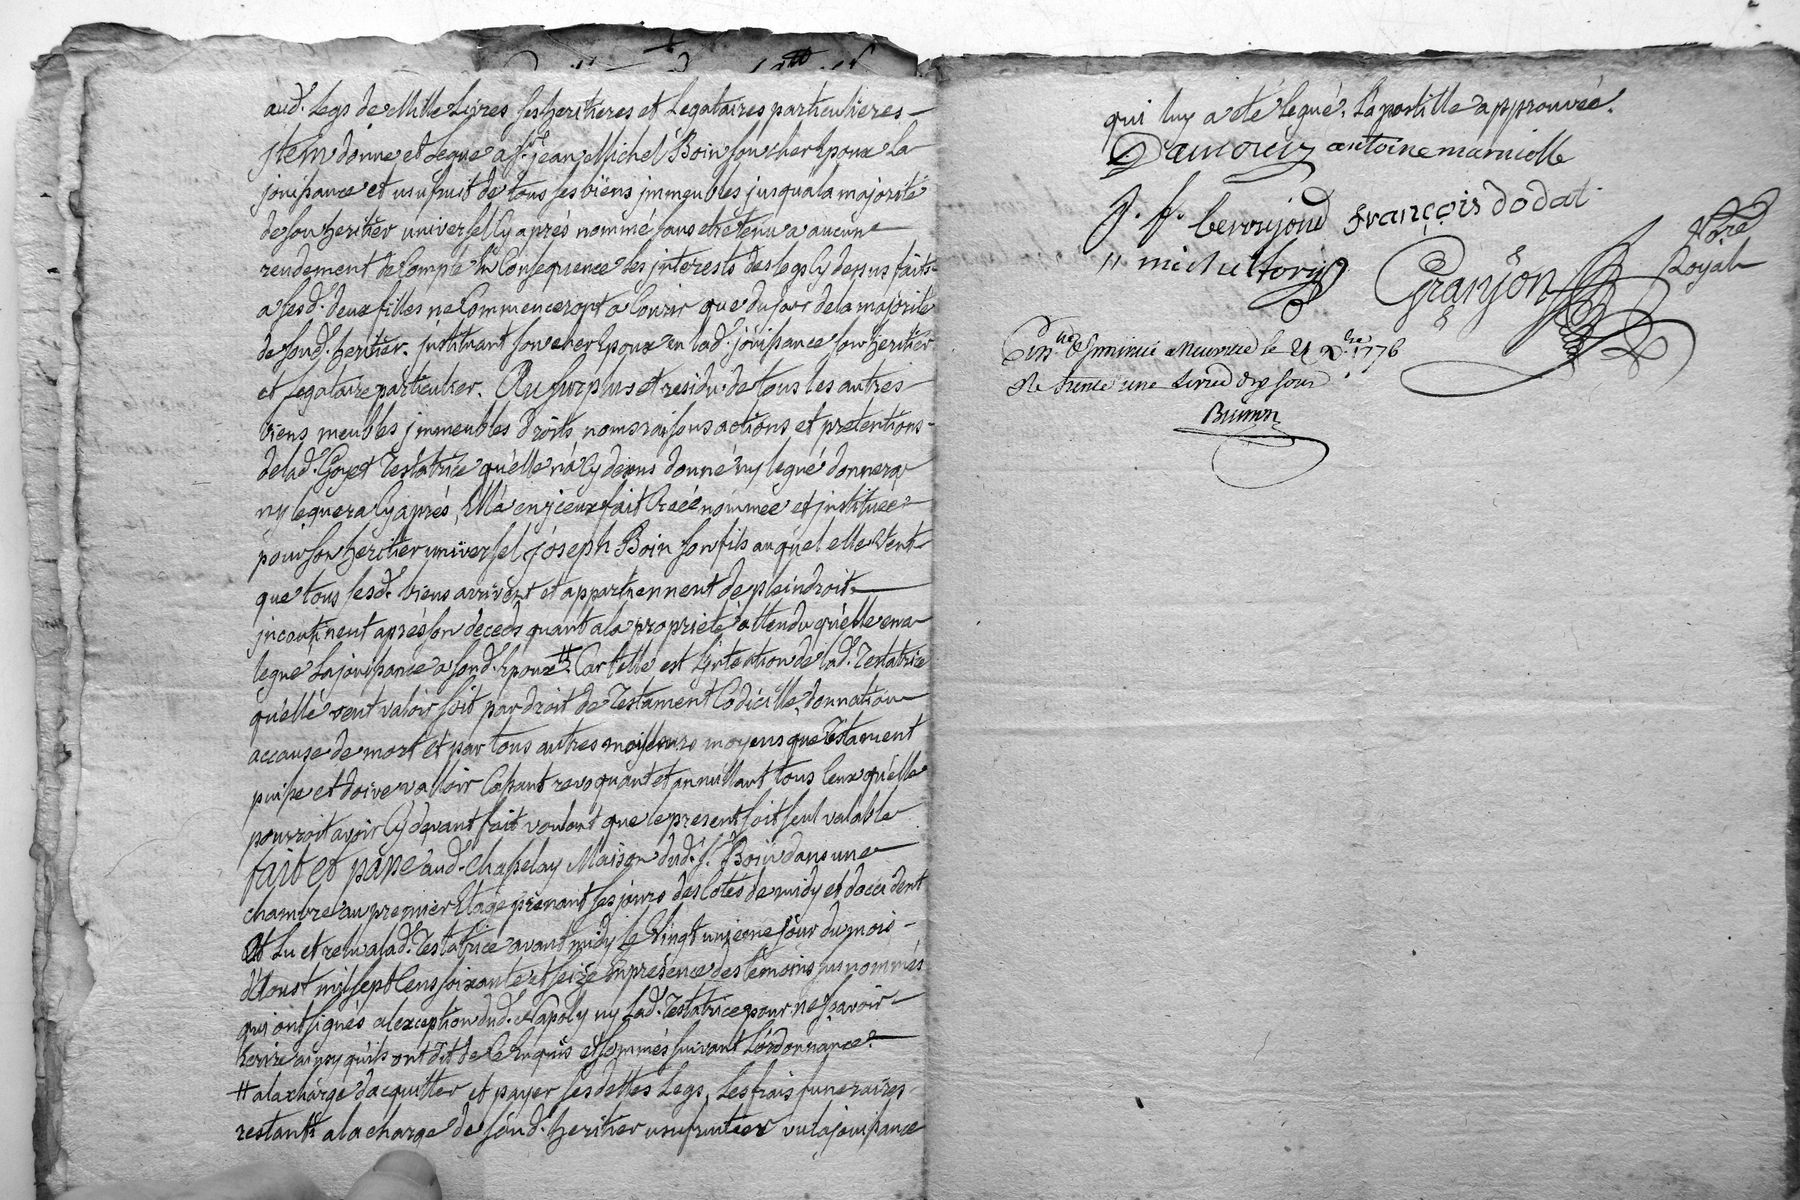 aud. Legs de Mille Livres ses heritieres et Legataires particulieres
jtem donne et Legue a Sr. jean Michel Boin son cher Epoux La
jouissance et usufruit de tous ses biens jmmeubles jusqua la majorité
de son heritier universel Cy aprés nommé sans etre tenu a aucun
rendement de Compte En Consequence les jnterests des legs Cy dessus faits
a sesd. deux filles ne Commenceront a Courir que du jour de la majorité
de sond. heritier. justituant son cher Epoux en lad. jouissance son heritier
et Legataire particulier. Au surplus et residu de tous les autres
biens meubles jmmeubles droits noms raisons actions et pretentions
de lad. Goyet Testatrice qu'elle n'a Cy dessus donné ny legué donnera
ny leguera Cy aprés, Elle a en jceux fait Créé nommée et jnstituée
pour son heritier universel joseph Boin son fils auquel elle veut
que tous sesd. biens arrivent et appartiennent de plein droit
jncontinent aprés son deceds quant a la proprieté attendu qu'elle en a
legué la jouissance a sond. Epoux #. Car telle est L'intention de lad. Testatrice
qu'elle veut valoir soit par droit de Testament Codicille, donnation
accause de mort et par tous autres meilleurs moyens que Testament
puisse et doive valloir Cassant revoquant et annullant tous Ceux qu'elle
pourroit avoir Cy devant fait voulant que le present soit seul valable
fait et passé aud. Chapelay Maison dud. Sr. Boin dans une
chambre au premier Etage prenant ses jours des Cotés de midy et d'occident
Et Lu et relu a lad. Testatrice avant midy le Vingt unzieme jour du mois
d'Aoust mil sept Cens soixante et seize En présence des témoins sus nommés
qui ont signés a lexception dud. Lapoly ny Lad. Testatrice pour ne sçavoir
Ecrire ainsy qu'ils ont dit de Ce Enquis et sommés suivant L'ordonnance.
# a la charge d'acquitter et payer les dettes Legs, Les frais funeraires
restants a la charge de sond. heritier usufruitier vu la jouissance
qui luy a été legué. La postille approuvée.
Damouiz antoine marniolle
J. f. beroujond françois dodat
michel
Granjon Nore Royal
le 21 1776
une Livre dix sous